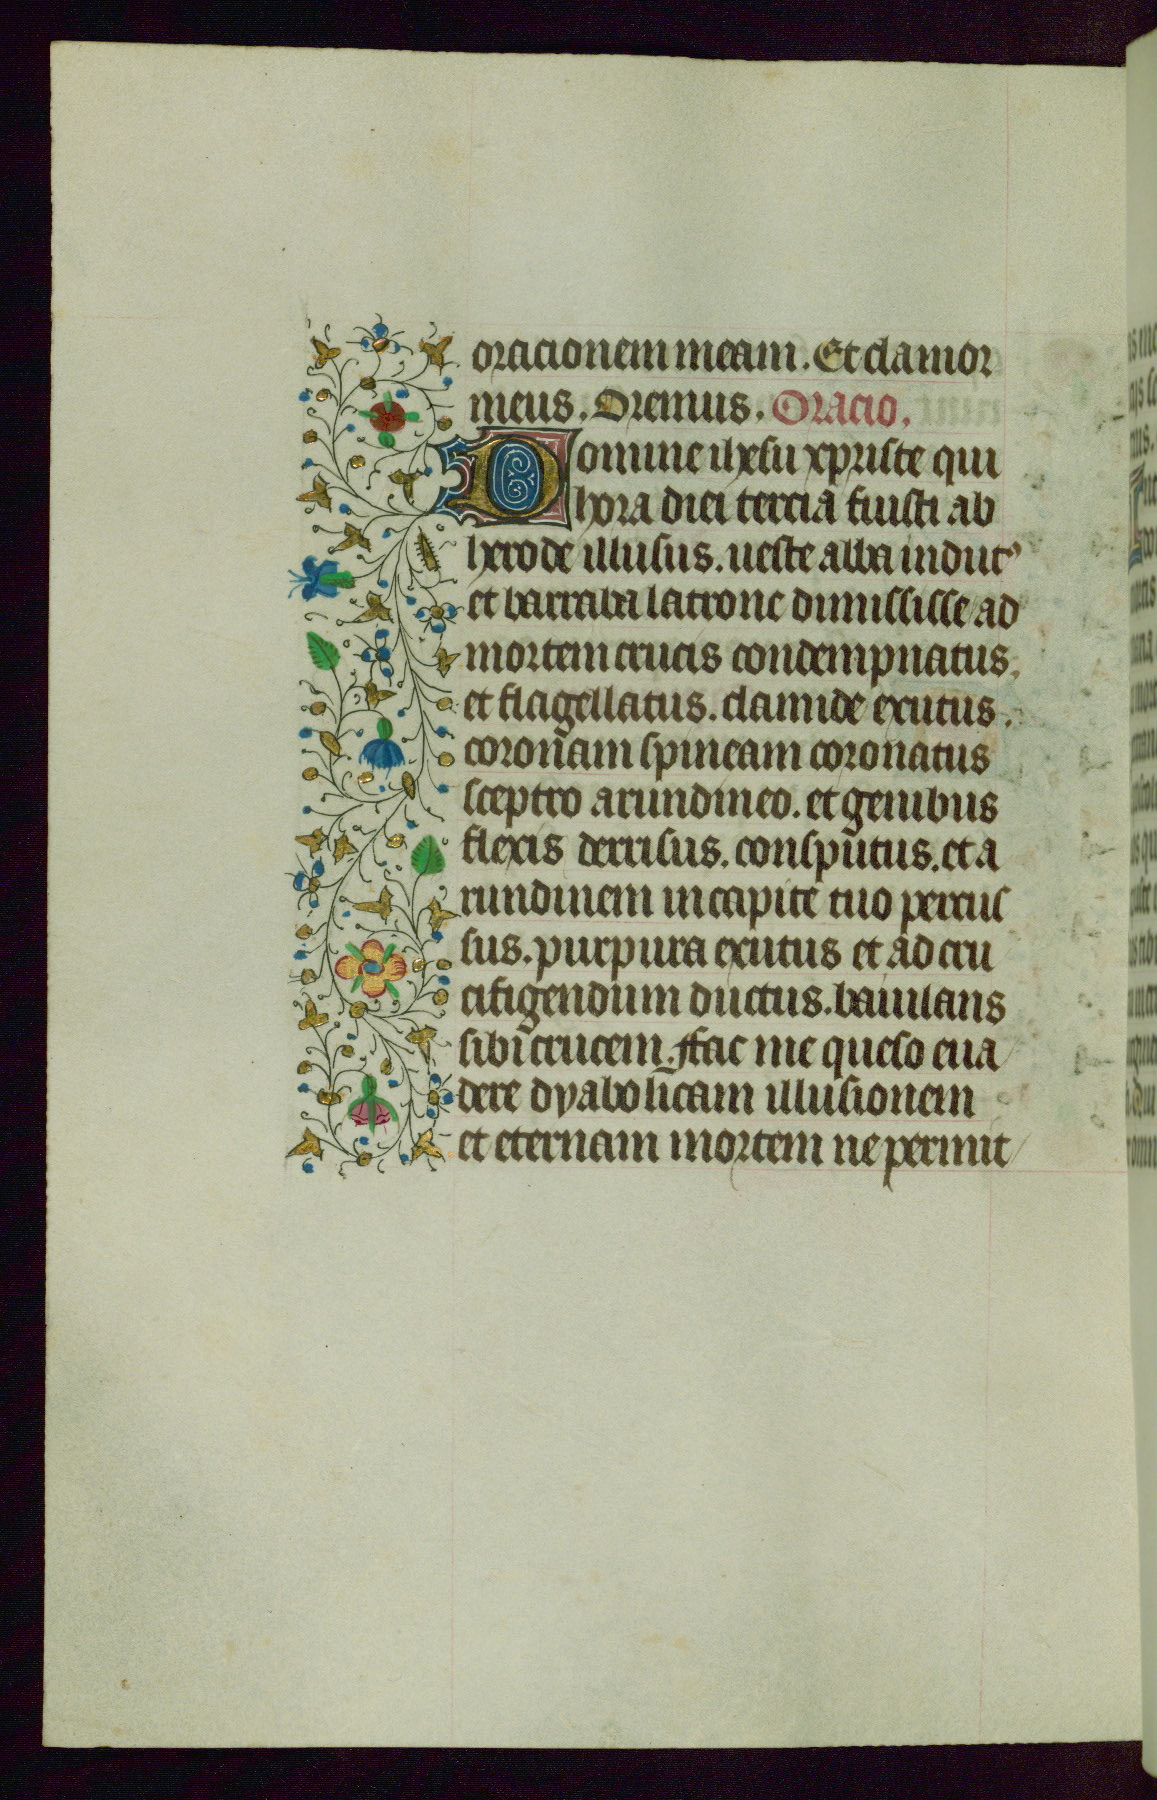 oracionem meam. Et clamor
meus. Oremus. Oracio.
Domine ihesu xpriste qui
hora diei tercia fuisti ab
herode illusus. ueste alba indut9
et barraba latrone dimississe ad
mortem crucis condempnatus.
et flagellatus. clamide exutus.
coronam spineam coronatus
sceptro arundineo. et genibus
flexis derrisus. consputus. et a
rundinem in capite tuo percus
sus. purpura exutus et ad cru
cifigendum ductus. baiulans
sibi crucem. ffac me queso eua
dere dyabolicam illusionem
et eternam mortem ne permit